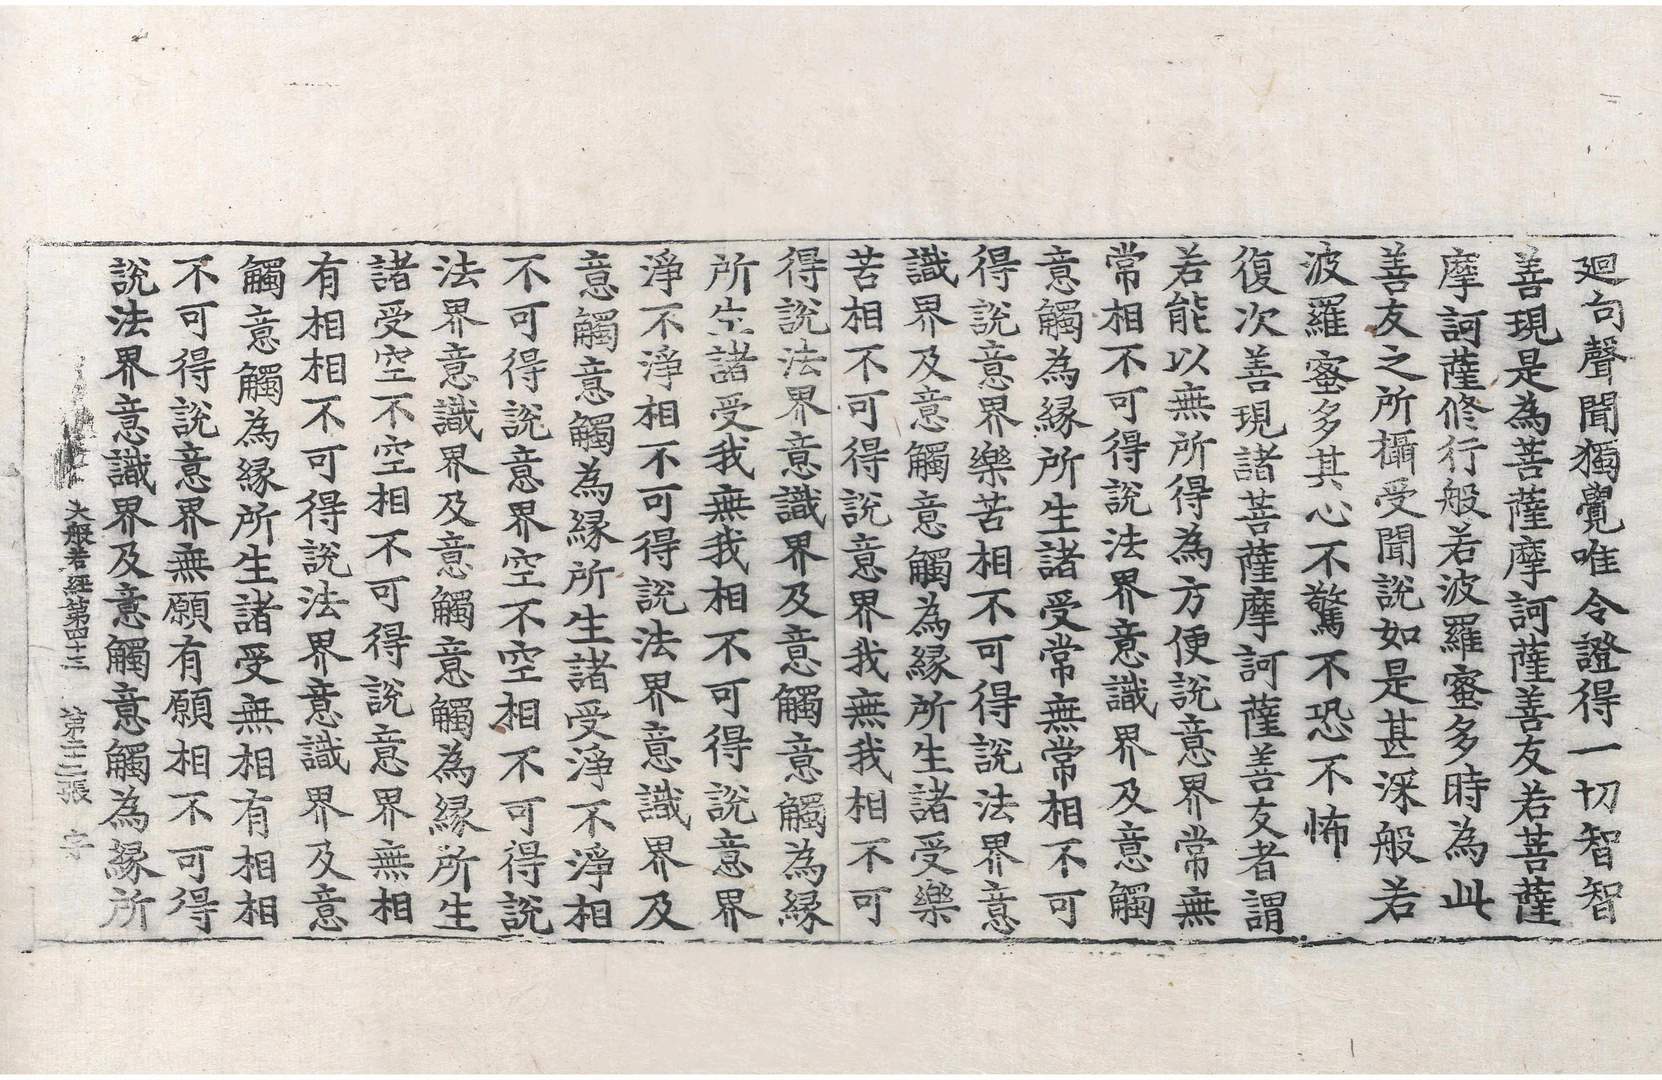 廻向聲聞獨覺唯令證得一切智智
善現是為菩薩摩訶薩善友若菩薩
摩訶薩修行般若波羅蜜多時為此
善友之所攝受聞說如是甚深般若
波羅蜜多其心不驚不恐不怖
復次善現諸菩薩摩訶薩善友者謂
若能以無所得為方便說意界常無
常相不可得說法界意識界及意觸
意觸為緣所生諸受常無常相不可
得說意界樂苦相不可得說法界意
識界及意觸意觸為緣所生諸受樂
苦相不可得說意界我無我相不可
得說法界意識界及意觸意觸為緣
所生諸受我無我相不可得說意界
淨不淨相不可得說法界意識界及
意觸意觸為緣所生諸受淨不淨相
不可得說意界空不空相不可得說
法界意識界及意觸意觸為緣所生
諸受空不空相不可得說意界無相
有相相不可得說法界意識界及意
觸意觸為緣所生諸受無相有相相
不可得說意界無願有願相不可得
說法界意識界及意觸意觸為緣所
大般若經第四十三 第 張